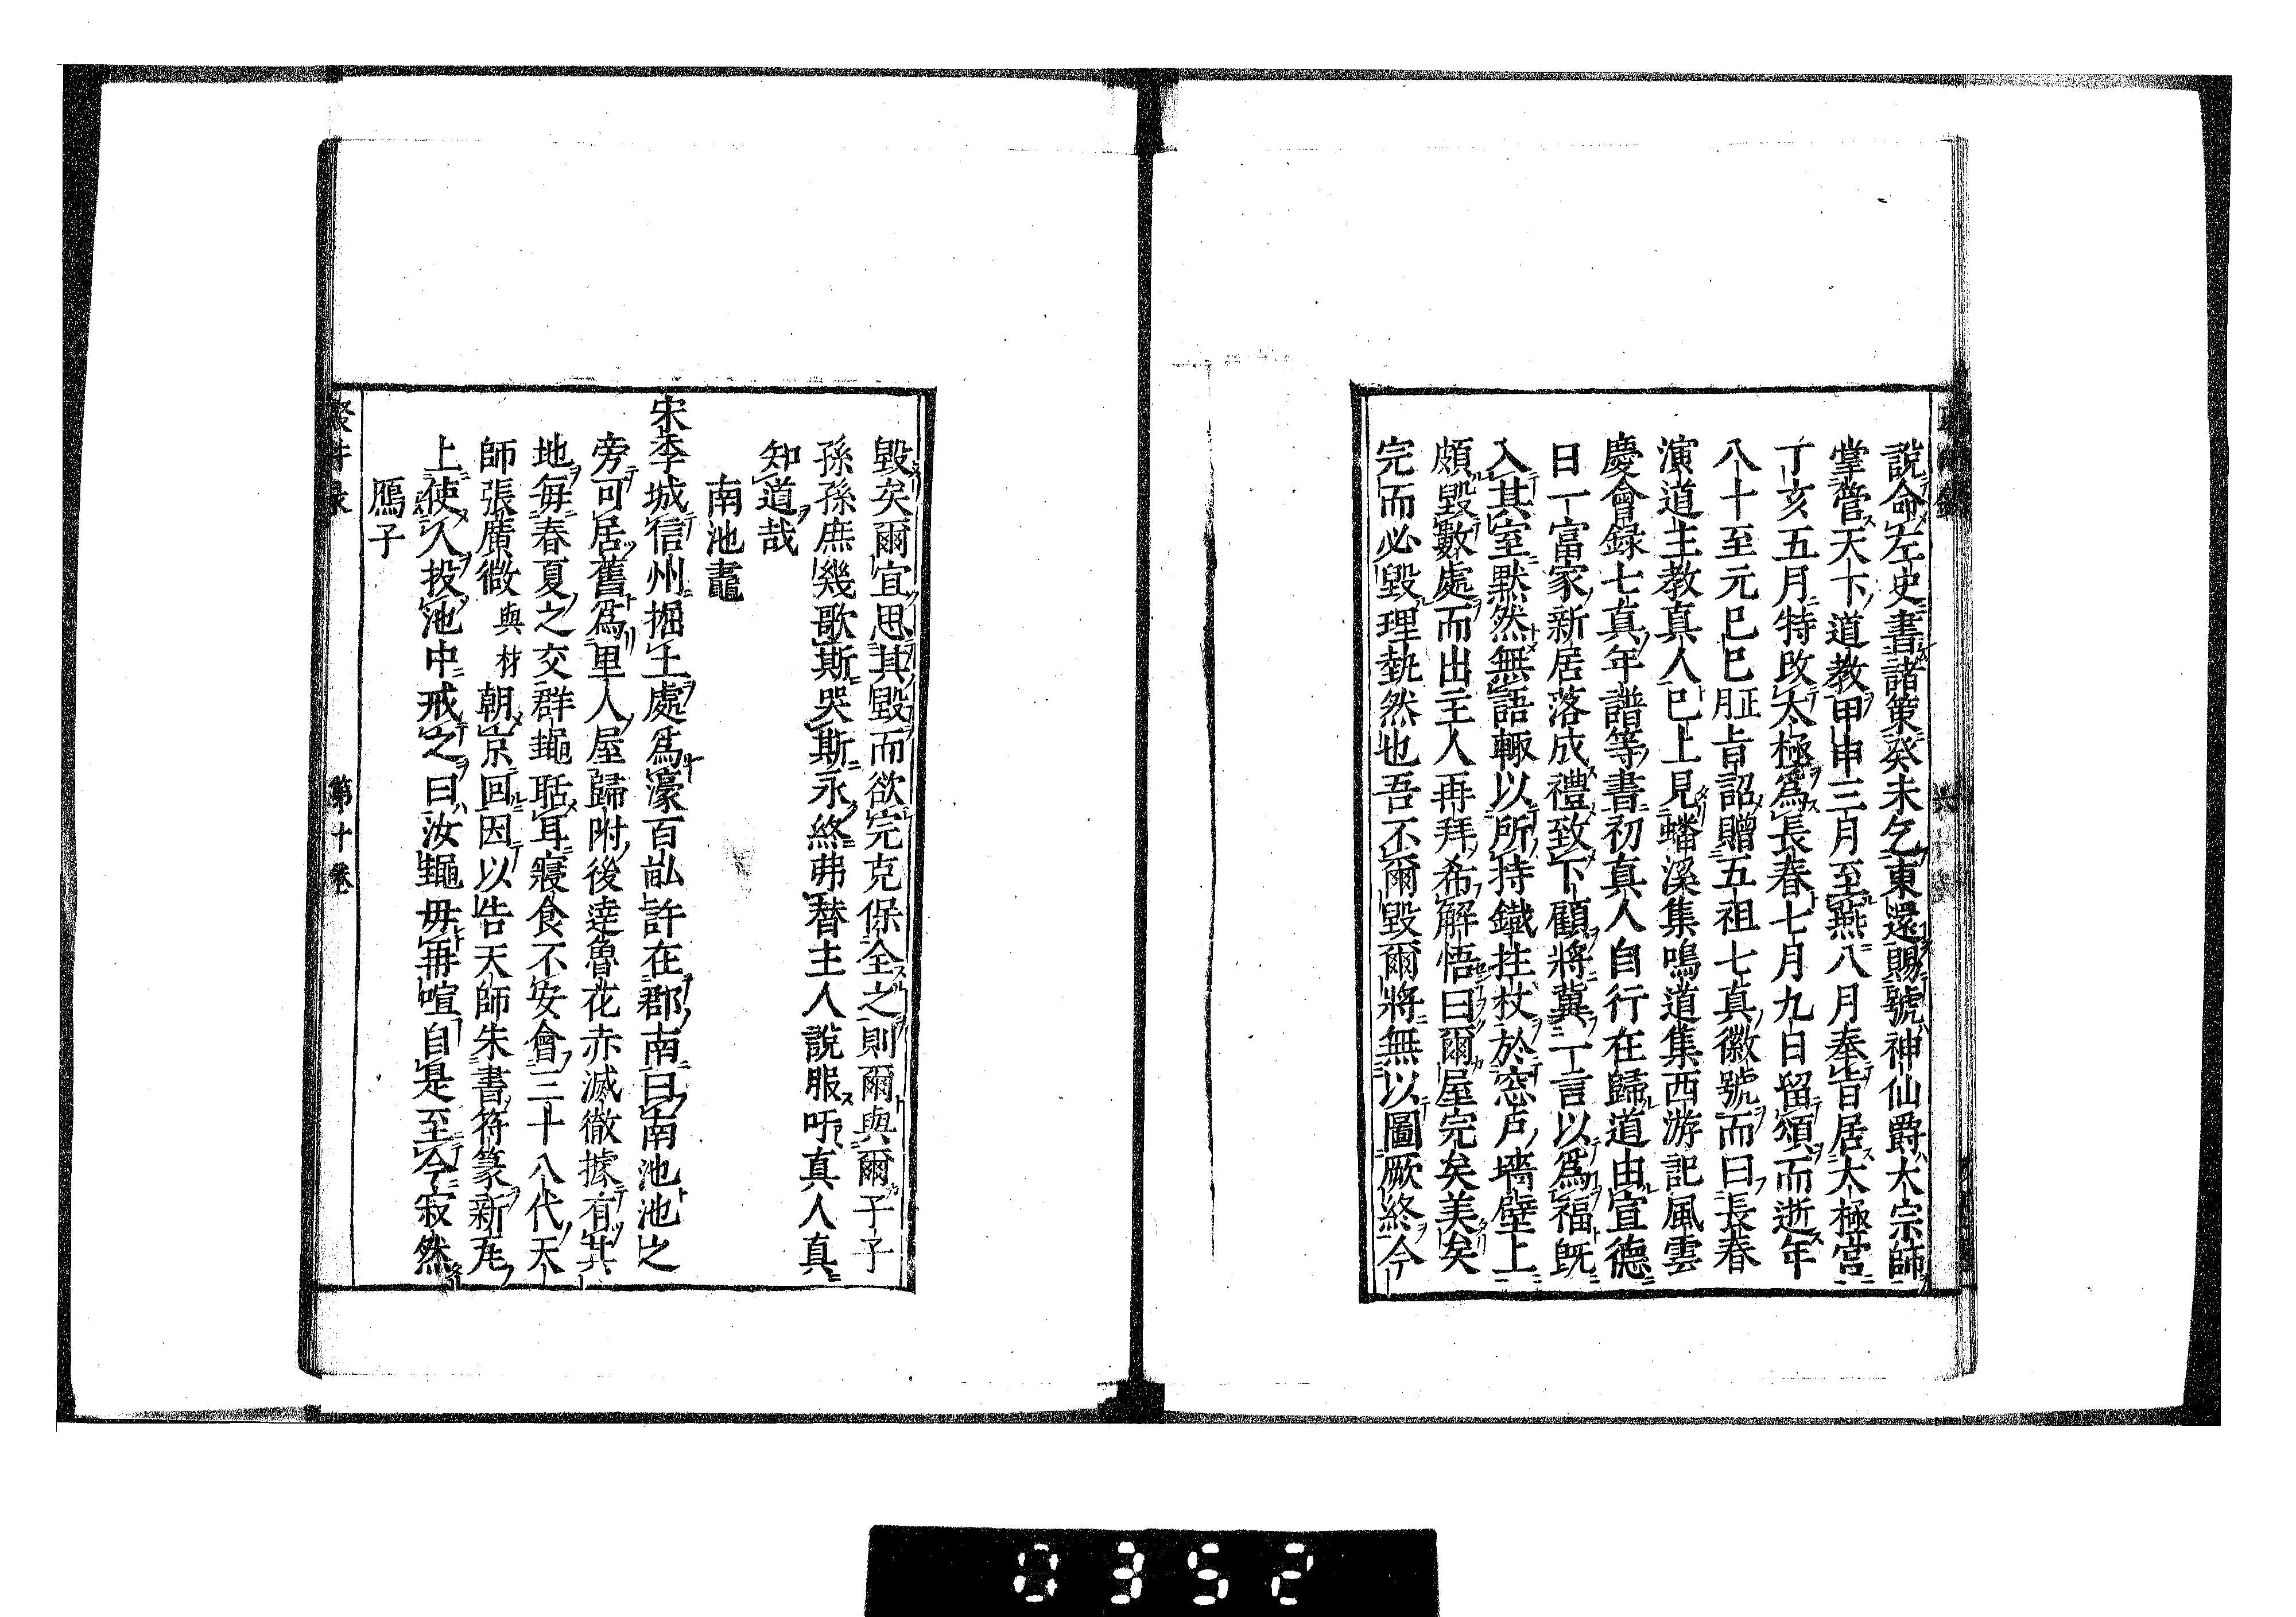 說命左史書諸策癸未乞東還賜號神仙爵太宗師
掌管天下道教甲申三月至燕八月奉旨居太極宮
丁亥五月特改太極爲長春七月九日留頌而逝年
八十至元己巳正月詔贈五祖七真徽號而曰長春
演道主教真人已上見蟠溪集鳴道集西游記風雲
慶會録七真年譜等書初真人自行在歸道由宣德
日一富家新居落成禮致下顧將冀一言以爲福既
入其室黙然無語輙以所持鐵拄杖於窓户墻壁上
頗毀數處而出主人再拜希解悟曰爾屋完矣美矣
完而必毀理埶然也吾不爾毀爾將無以圖厥終今
毀矣爾宜思其毀而欲完克保全之則爾與爾子子
孫孫庶幾歌斯哭斯永終弗替主人說服吁真人真
知道哉
南池鼃
宋季城信州掘土處爲濠百畝許在郡南曰南池池之
旁可居舊爲里人屋歸附後達魯花赤滅徹據有其
地毎春夏之交群黽聒耳寢食不安會三十八代天
師張廣微與材朝京回因以告天師朱書符篆新瓦
上使人投池中戒之曰汝黽毋再喧自是至今寂然
鴈子
第十卷